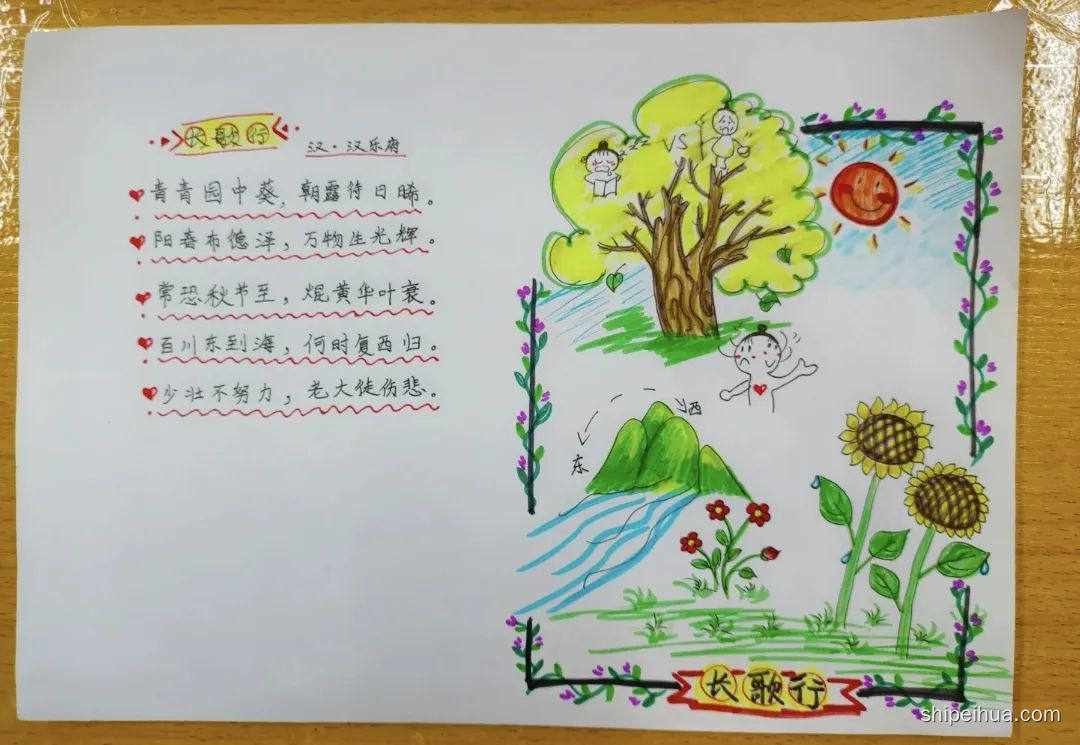 长歌行
汉·汉乐府
青青园中葵，朝露待日晞。
阳春布德泽，万物生光辉。
常恐秋节至，焜黄华叶衰。
百川东到海，何时复西归。
少壮不努力，老大徒伤悲。
zzz VS
西
东
长歌行
shipeihua.com